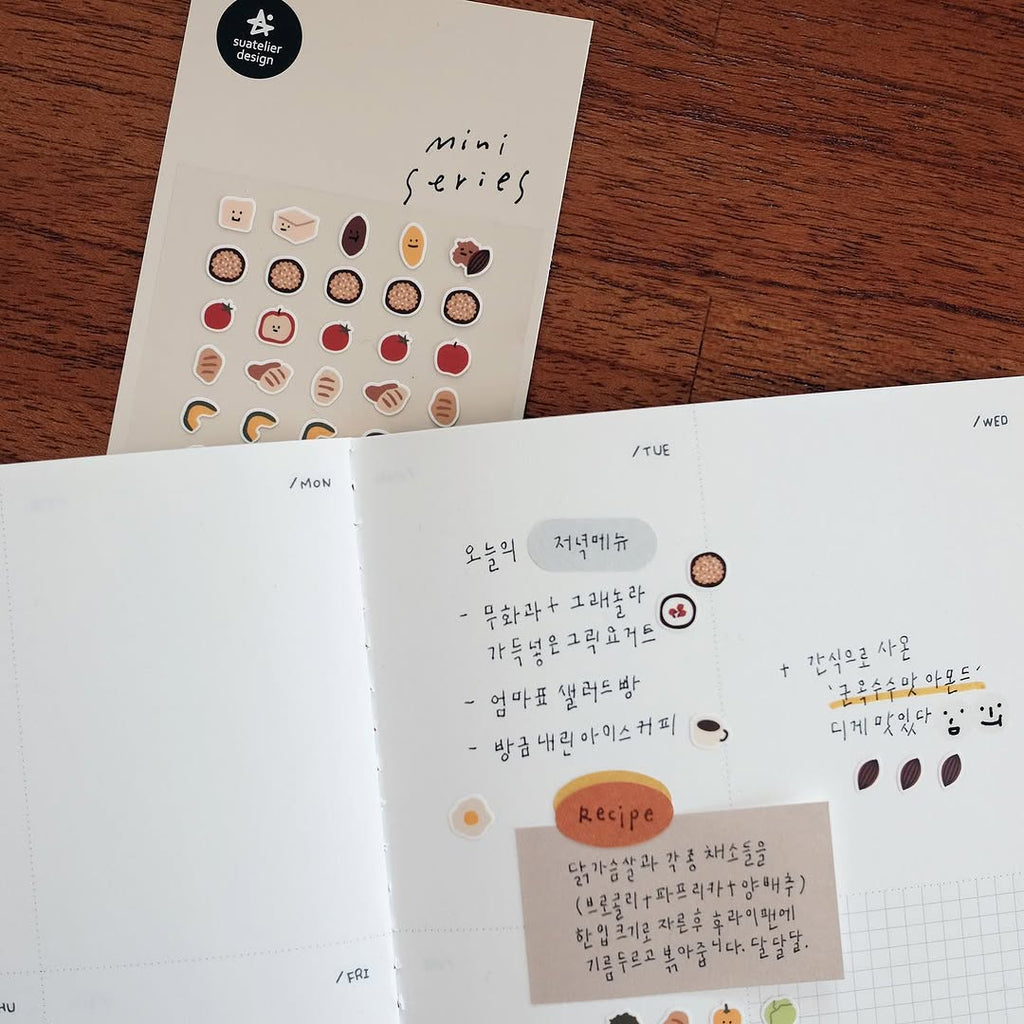 suatelier
design
mini
series
/MON
/TUE
/WED
오늘의 저녁메뉴
- 무화과 + 그래놀라
가득넣은 그릭요거트
- 엄마표 샐러드빵
- 방금내린 아이스커피
+ 간식으로 사온
'군옥수수맛 아몬드'
디게 맛있다
Recipe
닭가슴살과 각종 채소들을
(브로콜리+파프리카+양배추)
한입크기로 자른후 후라이팬에
기름두르고 볶아줍니다. 달달달.
HU
/FRI